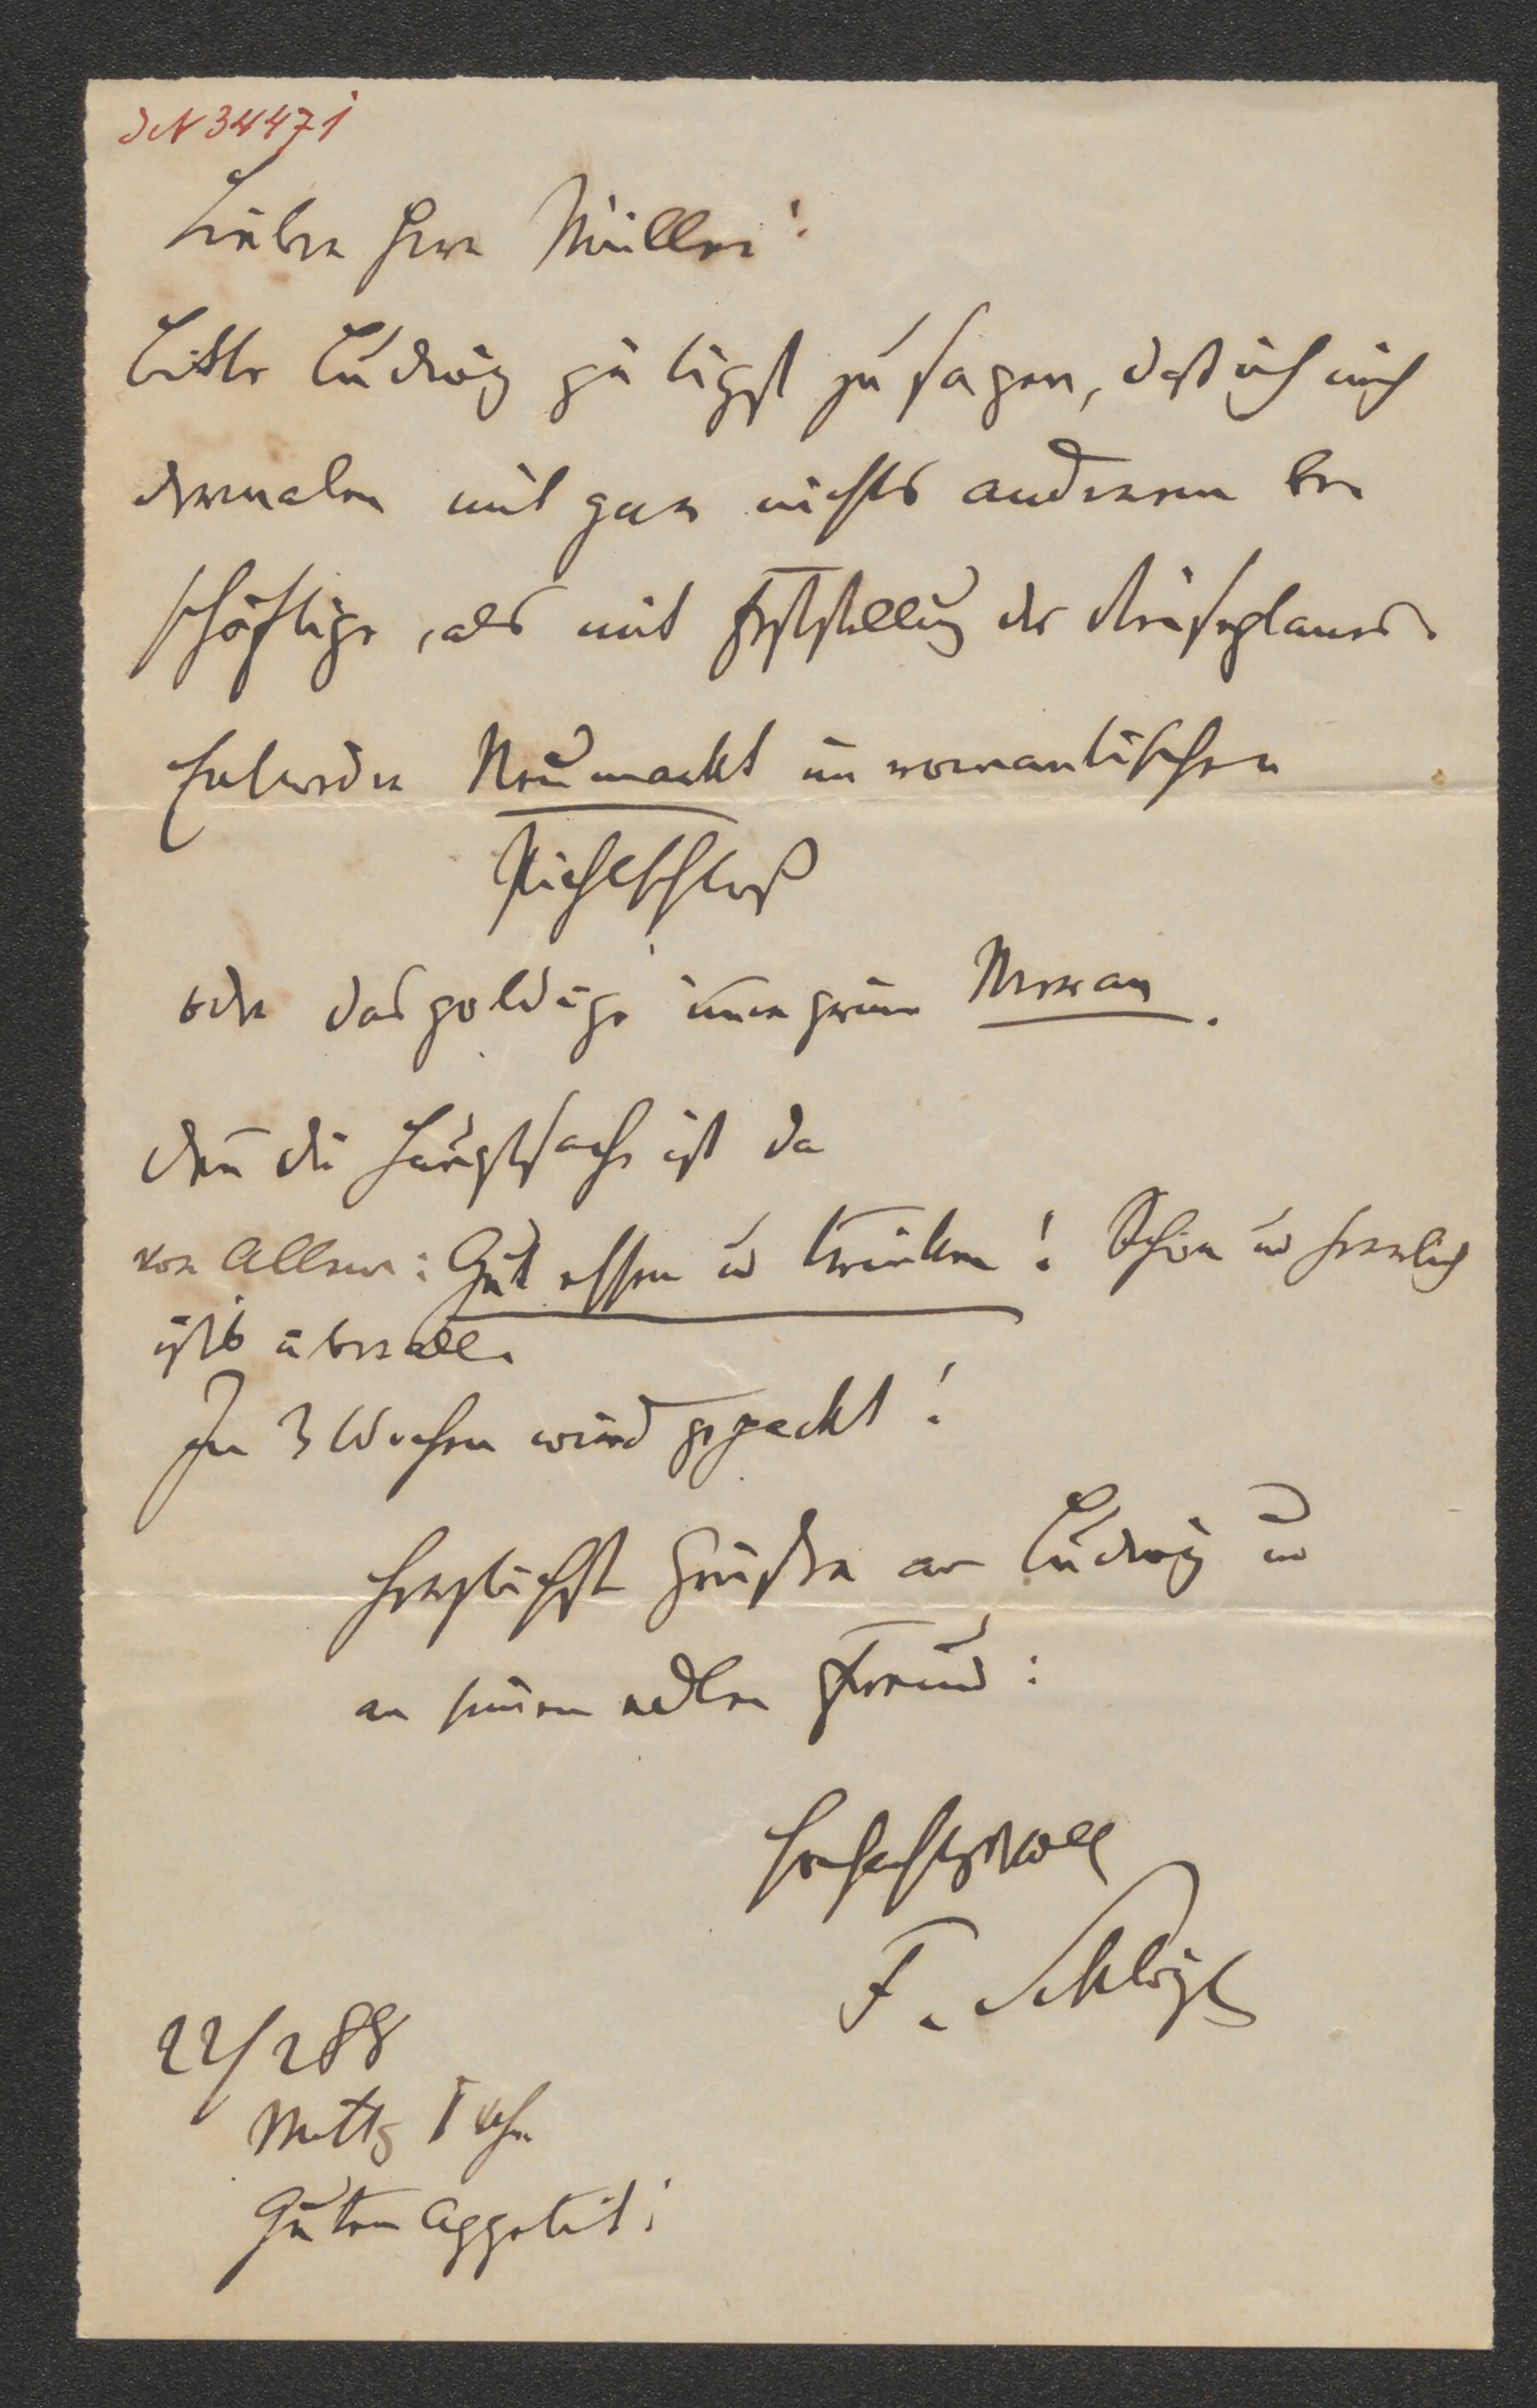 JN 34471
Lieber Herr Müller!
Bitte Ludwig gütigst zu sagen, daß ich mich
dermalen mit gar nichts anderem be
schäftige, als mit Feststellung des Reiseplanes.
Entweder Neumarkt im romantischen
oder das goldige immergrüne Meran.
den̅ die Hauptsache ist da
vor Allem: Gut essen u trinken! Schön u herrlich
ists überall.
In 3 Wochen wird gepackt!
Herzlichste Grüße an Ludwig u
an seinen edlen Freund:
Hochachtungsvoll
F. Schlögl
22/2 88
Mittg 1 Uhr
Guten Appetit!